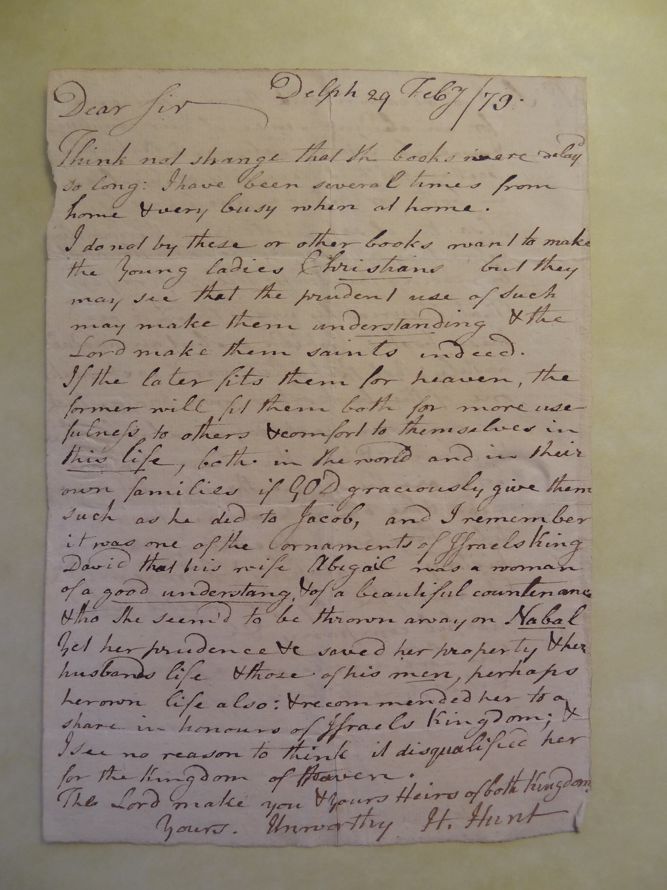 Delph 29 Feby/79.
Dear Sir
Think not strange that the books were delayd
so long: I have been several times from
home & very busy when at home.
I do not by these or other books want to make
the Young ladies Christians but they
may see that the prudent use of such
may make them understanding & the
Lord make them saints indeed.
If the later fits them for heaven, the
former will fit them both for more use
fulness to others & comfort to themselves in
this life, both in the world and in their
own families if GOD graciously give them
such as he did to Jacob, and I remember
it was one of the Cornaments of Israels King
David that his wife Abigail was a woman
of a good understang, & of a beautiful countenance
& tho She seem'd to be thrown away on Nabal
Yet her prudence &c saved her property & her
husbands life & those of his men, perhaps
her own life also: & recommended her to a
share in honours of Israels Kingdom; &
I see no reason to think it disqualified her
for the Kingdom of Heaven.
The Lord make you & Yours Heirs of both Kingdom
Yours. Unworthy H. Hunt